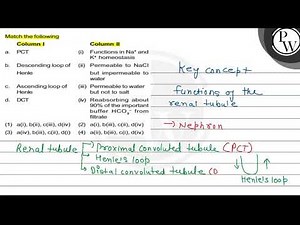 Match the following
Column I Column II
a. PCT (i) Functions in Na⁺ and K⁺ homeostasis
b. Descending loop of Henle (ii) Permeable to NaCl but impermeable to water
c. Ascending loop of Henle (iii) Permeable to water but not to salt
d. DCT (iv) Reabsorbing about 90% of the important buffer HCO₃⁻ from filtrate
(1) a(i), b(ii), c(iii), d(iv) (2) a(i), b(iii), c(ii), d(iv)
(3) a(iv), b(iii), c(ii), d(i) (4) a(iv), b(ii), c(iii), d(i)
Key concept
functions of the
renal tubule
→ Nephron
Renal tubule → Proximal convoluted tubule (PCT)
→ Henle's loop
→ Distal convoluted tubule (D
Henle's loop